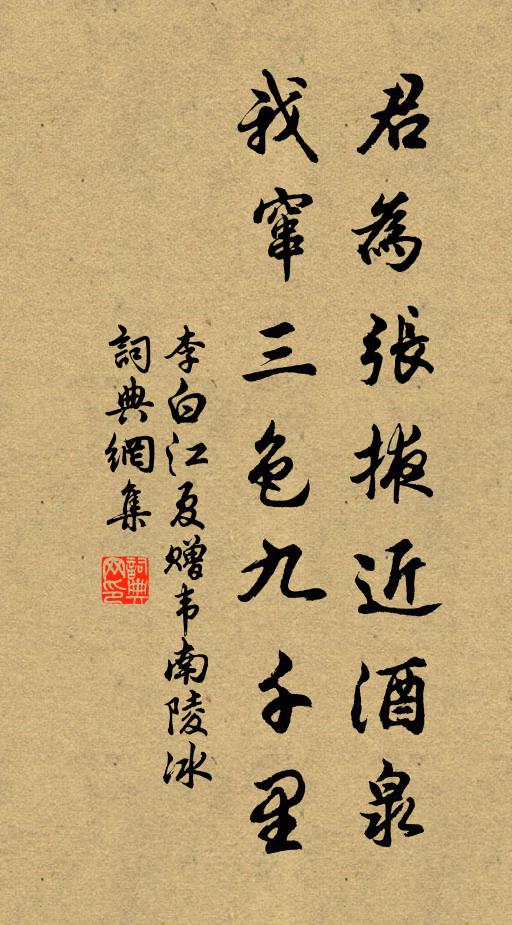 君為張掖近酒泉
我竄三色九千里
李白江夏贈韦南陵冰
詞典網集
詞典
网印